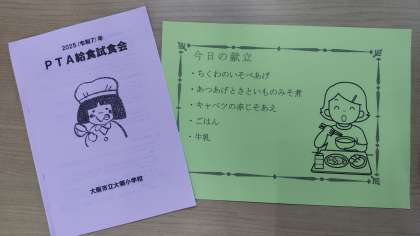 2025(令和7)年
PTA給食試食会
大阪市立大領小学校
今日の献立
・ちくわのいそべあげ
・あつあげとさといものみそ煮
・キャベツの赤じそあえ
・ごはん
・牛乳